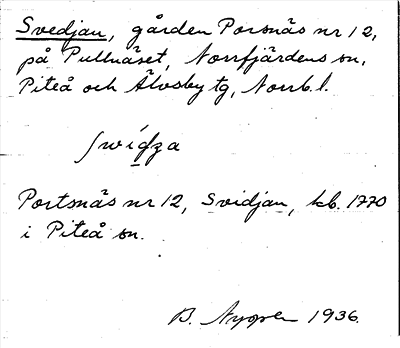 Svedjan, gården Porsnäs nr 12,
på Pullnäset, Norrfjärdens sn,
Piteå och Älvsby tg, Norrb. l.
Portsnäs nr 12, Svidjan, kb. 1770
i Piteå sn.
B. Nygren 1936.